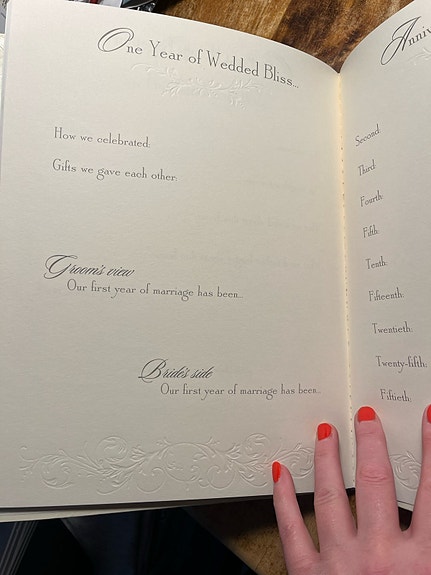 One Year of Wedded Bliss...
How we celebrated:
Gifts we gave each other:
Groom's view
Our first year of marriage has been...
Bride's side
Our first year of marriage has been...
Second:
Third:
Fourth:
Fifth:
Tenth:
Fifteenth:
Twentieth:
Twenty-fifth:
Fiftieth: